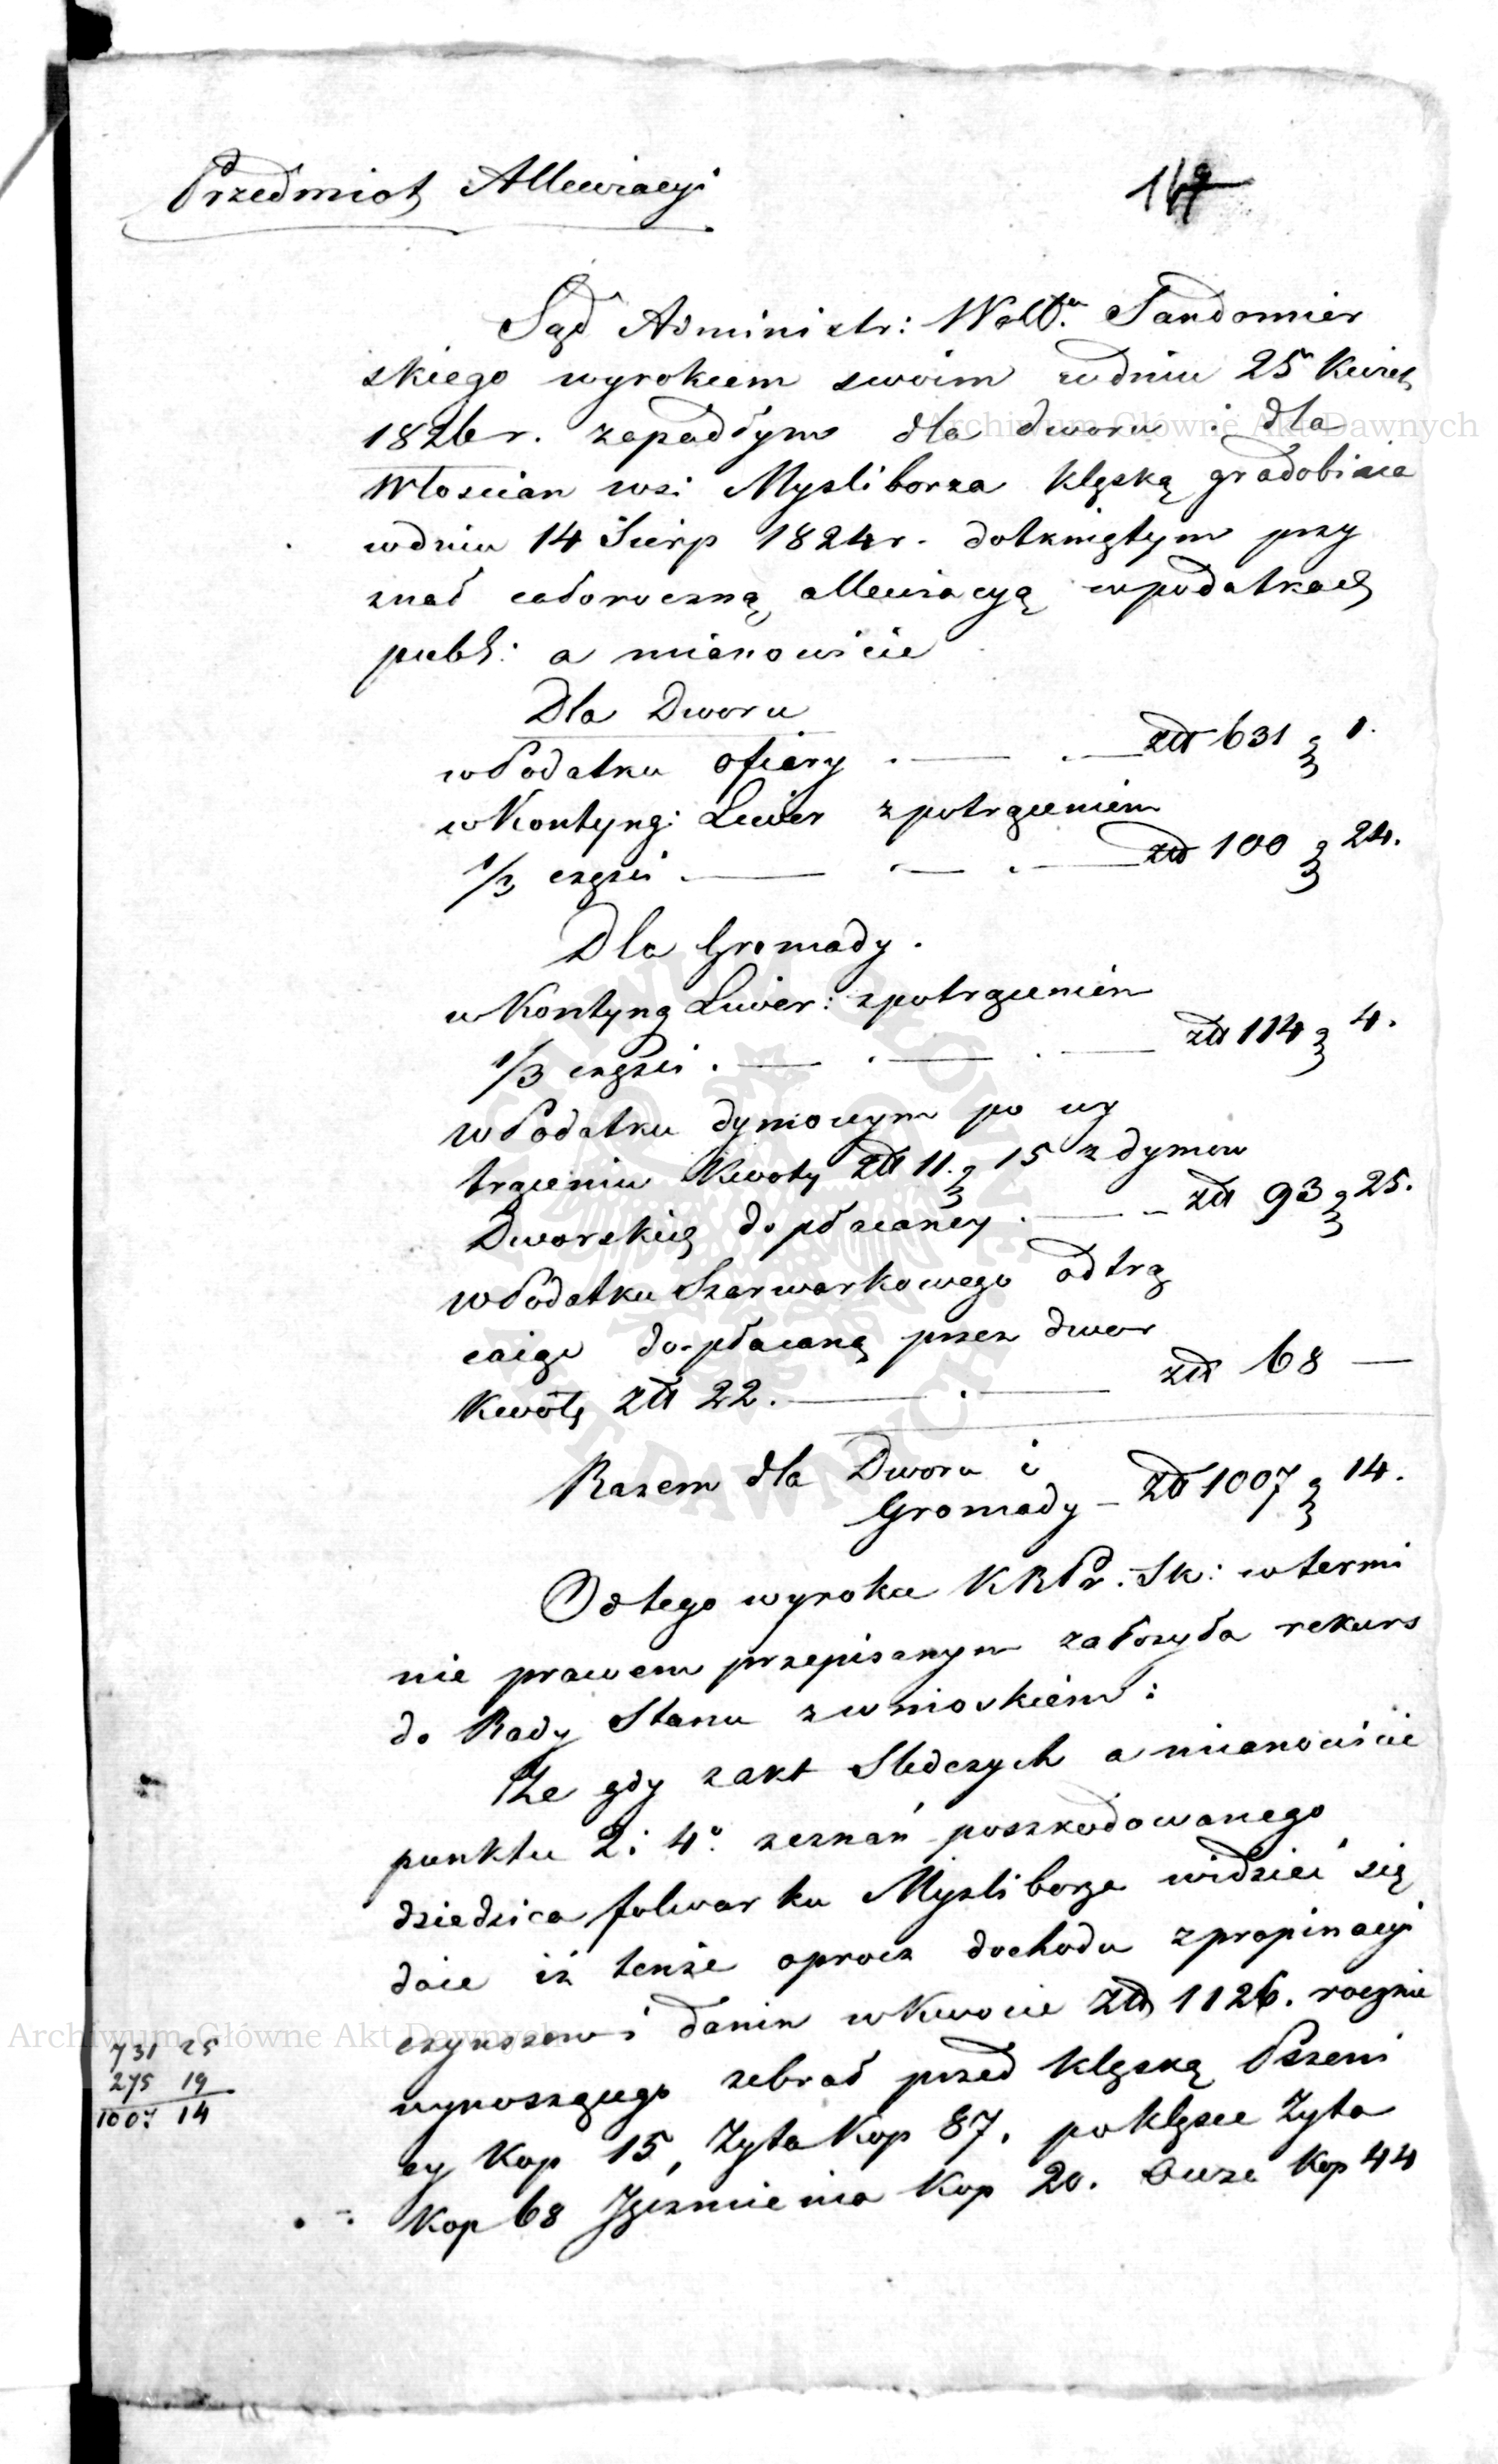 Przedmiot Allewiacyi
Sąd Administr: Wodt. Sandomier
skiego wyrokiem swoim wdniu 25 Kwiet
1826 r. zapadłym dla dworu i dla
Włoscian wsi Mysliborza klęską gradobicia
wdniu 14 Sierp 1824 r. dotkniętym przy
znał całoroczną allewiacyą wpodatkach
publ: a mianowicie
Dla Dworu
w Podatku ofiary . — . — złł 631 g 1.
w Kontyng: Liwer zpotrąceniem
1/3 części . — . — . — złł 100 g 24.
Dla Gromady.
w Kontyng Liwer: zpotrącenien
1/3 części . — . — . — złł 114 g 4.
w Podatku dymowym po wy
trąceniu Kwoty złł 11. g 15 z dymow
Dworskich dopłacaney . — – złł 93 g 25.
w Podatku Szarwarkowego odtrą
caiąc do-płacaną przez dwor
Kwotę złł 22. — . — złł 68 —
Razem dla Dworu i
Gromady – złł 1007 g 14.
Od tego wyroku KRPr. Sk: wtermi
nie prawem przepisanym założyła rekurs
do Rady Stanu zwnioskiem:
Że gdy zakt Sledczych a mianowicie
punktu 2 i 4º zeznań poszkodowanego
dziedzica folwarku Mysliborza widzieć się
daie iż tenże oprocz dochodu zpropinacyi
czynszow i danin wKwocie złł 1126. rocznie
wynoszącego zebrał przed klęską Pszeni
cy Kop 15, Żyta Kop 87. poklęsce Żyta
Kop 68 Jęczmienia Kop 20. Owsa Kop 44
731 25
275 19
1007 14
Archiwum Główne Akt Dawnych
Archiwum Główne Akt Dawnych
ARCHIWUM GŁÓWNE AKT DAWNYCH